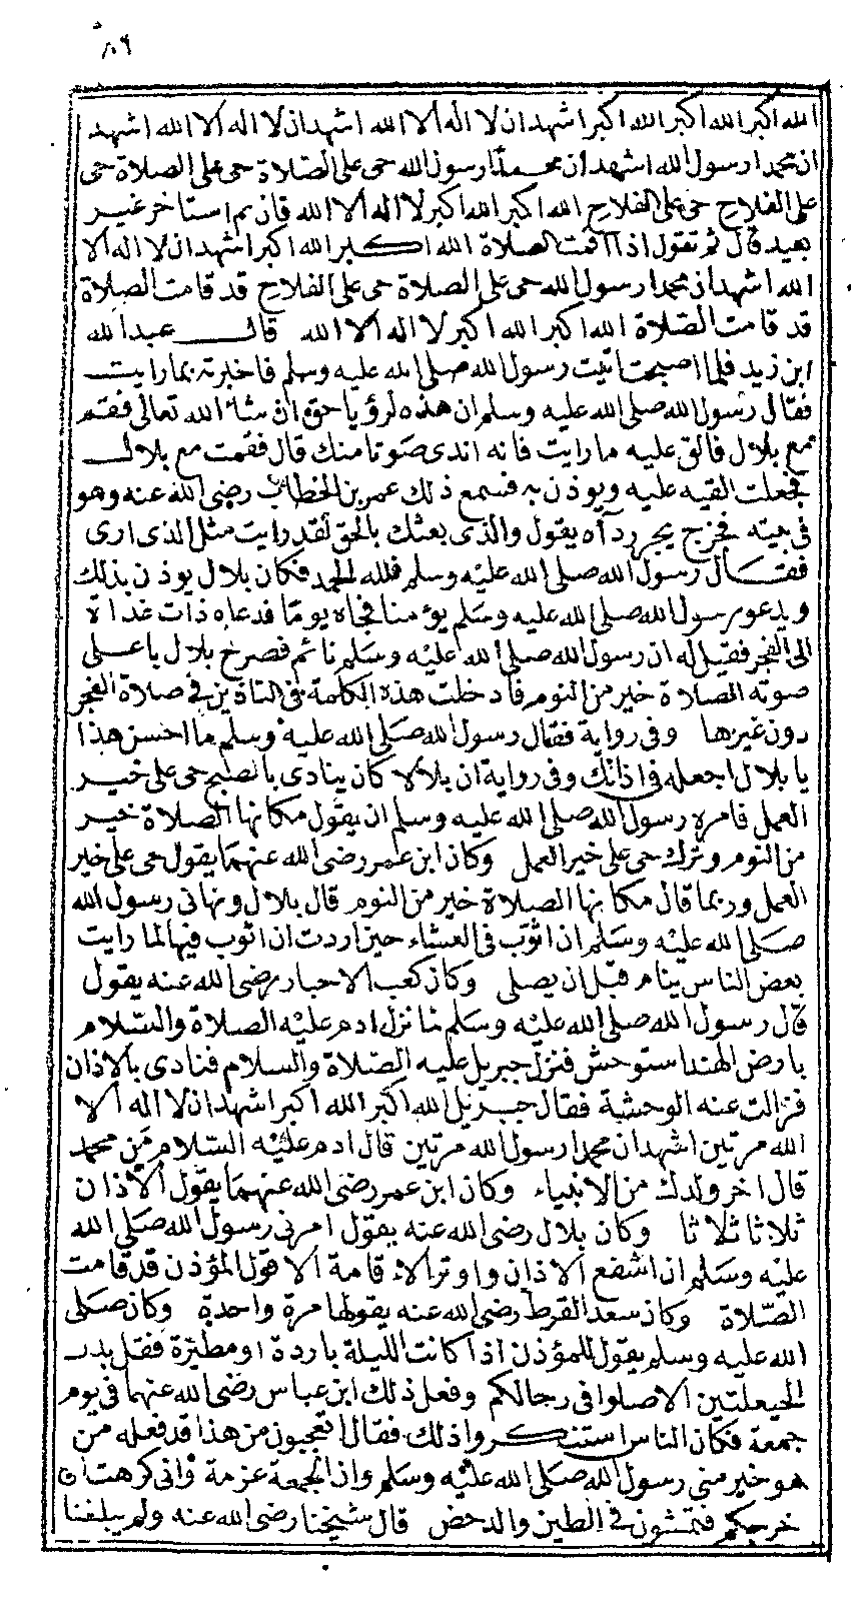 ١٠٩
الله اكبر الله اكبر الله اكبر الله اكبر اشهد ان لا اله الا الله اشهد ان لا اله الا الله اشهد
ان محمدا رسول الله اشهد ان محمدا رسول الله حى على الصلاة حى على الصلاة حى
على الفلاح حى على الفلاح الله اكبر الله اكبر لا اله الا الله قال ثم استاخر غير
بعيد قال ثم تقول اذا اقمت الصلاة الله اكبر الله اكبر اشهد ان لا اله الا
الله اشهد ان محمدا رسول الله حى على الصلاة حى على الفلاح قد قامت الصلاة
قد قامت الصلاة الله اكبر الله اكبر لا اله الا الله قال عبد الله
ابن زيد فلما اصبحت اتيت رسول الله صلى الله عليه وسلم فاخبرته بما رايت
فقال رسول الله صلى الله عليه وسلم ان هذه لرؤيا حق ان شاء الله تعالى فقم
مع بلال فالق عليه ما رايت فانه اندى صوتا منك قال فقمت مع بلال
فجعلت القيه عليه ويوذن به فسمع ذلك عمر بن الخطاب رضى الله عنه وهو
فى بيته فخرج يجر رداه يقول والذى بعثك بالحق لقد رايت مثل الذى ارى
فقال رسول الله صلى الله عليه وسلم فلله الحمد فكان بلال يوذن بذلك
ويدعو رسول الله صلى الله عليه وسلم يؤمنا فجاه يوما فدعاه ذات غداة
الى الفجر فقيل له ان رسول الله صلى الله عليه وسلم نائم فصرخ بلال باعلى
صوته الصلاة خير من النوم فادخلت هذه الكلمة فى التاذين فى صلاة الفجر
دون غيرها وفى رواية فقال رسول الله صلى الله عليه وسلم ما احسن هذا
يا بلال اجعله فى اذانك وفى رواية ان بلالا كان ينادى بالصبح حى على خير
العمل فامره رسول الله صلى الله عليه وسلم ان يقول مكانها الصلاة خير
من النوم وترك حى على خير العمل وكان ابن عمر رضى الله عنهما يقول حى على خير
العمل وربما قال مكانها الصلاة خير من النوم قال بلال ونهانى رسول الله
صلى الله عليه وسلم ان اثوب فى العشاء حين اردت ان اثوب فيها لما رايت
بعض الناس ينام قبل ان يصلى وكان كعب الاحبار رضى الله عنه يقول
قال رسول الله صلى الله عليه وسلم لما نزل ادم عليه الصلاة والسلام
بارض الهند استوحش فنزل جبريل عليه الصلاة والسلام فنادى بالاذان
فزالت عنه الوحشة فقال جبريل الله اكبر الله اكبر اشهد ان لا اله الا
الله مرتين اشهد ان محمدا رسول الله مرتين قال ادم عليه السلام من محمد
قال اخر ولدك من الانبياء وكان ابن عمر رضى الله عنهما يقول الاذان
ثلاثا ثلاثا وكان بلال رضى الله عنه يقول امرنى رسول الله صلى الله
عليه وسلم ان اشفع الاذان واوتر الاقامة الا قول المؤذن قد قامت
الصلاة وكان سعد القرط رضى الله عنه يقولها مرة واحدة وكان صلى
الله عليه وسلم يقول للمؤذن اذا كانت الليلة باردة او مطيرة فقل بدل
الحيعلتين الا صلوا فى رحالكم وفعل ذلك ابن عباس رضى الله عنهما فى يوم
جمعة فكان الناس استنكروا ذلك فقال اتعجبون من هذا قد فعله من
هو خير منى رسول الله صلى الله عليه وسلم وان الجمعة عزمة وانى كرهت ان
خرجكم فتمشون فى الطين والدحض قال شيخنا رضى الله عنه ولم يبلغنا